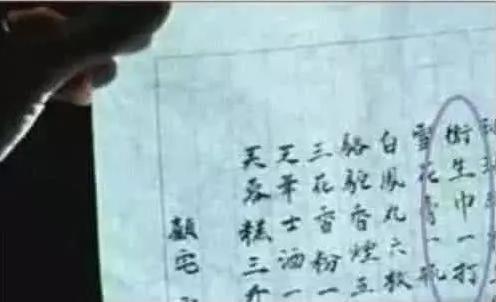 衛生巾一打
雪花膏一瓶
白鳳丸六
駱駝香煙五
三花香粉一
芝華士酒一
芙蓉糕三斤
顧宅